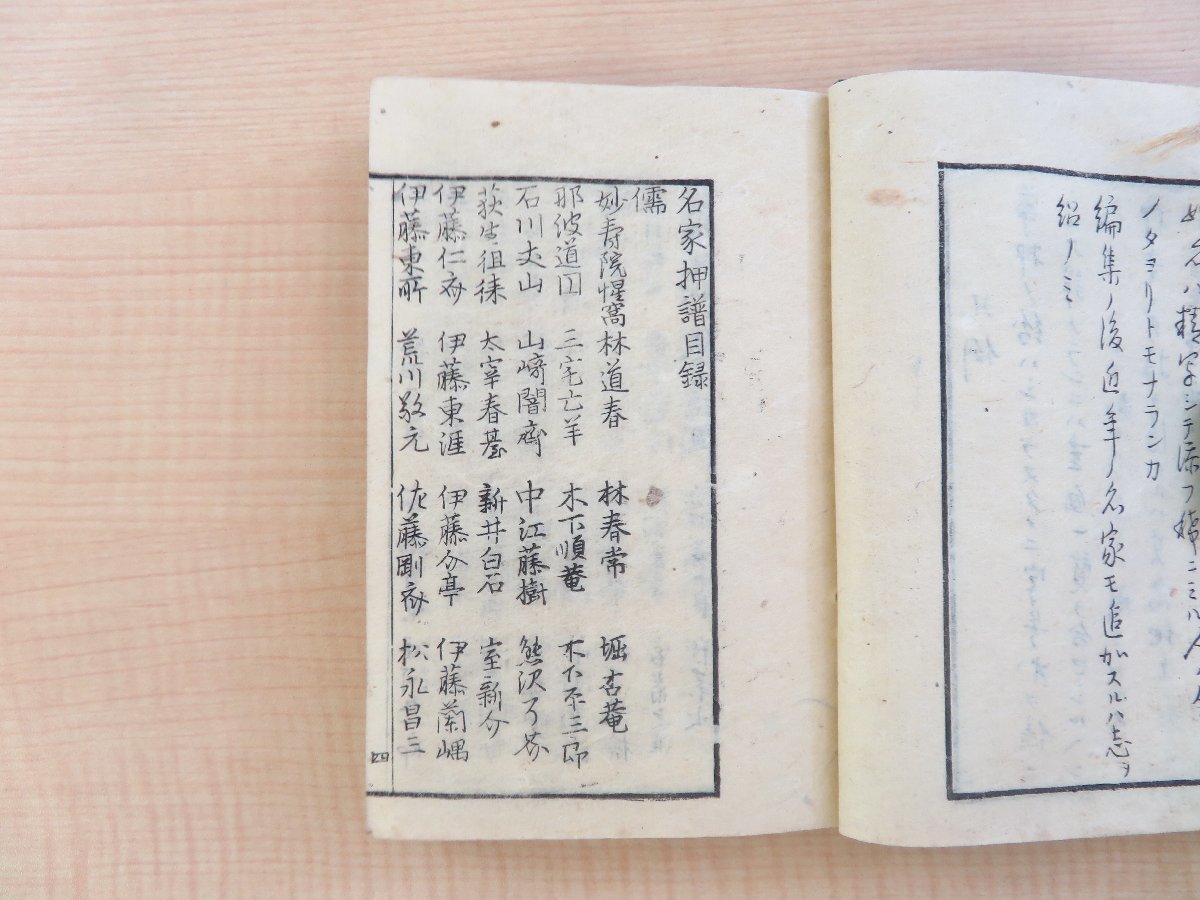 ノタヨリトモナランカ
編集ノ後近年ノ名家モ追加スルハ志ヲ
紹ノミ
名家押譜目録
儒
妙寿院惺窩 林道春 林春常 堀杏菴
那波道円 三宅亡羊 木下順菴 木下平三郎
石川丈山 山﨑闇齋 中江藤樹 熊沢了芥
荻生徂徠 太宰春臺 新井白石 室新介
伊藤仁斎 伊藤東涯 伊藤介亭 伊藤蘭嵎
伊藤東所 荒川敬元 佐藤剛斎 松永昌三
四